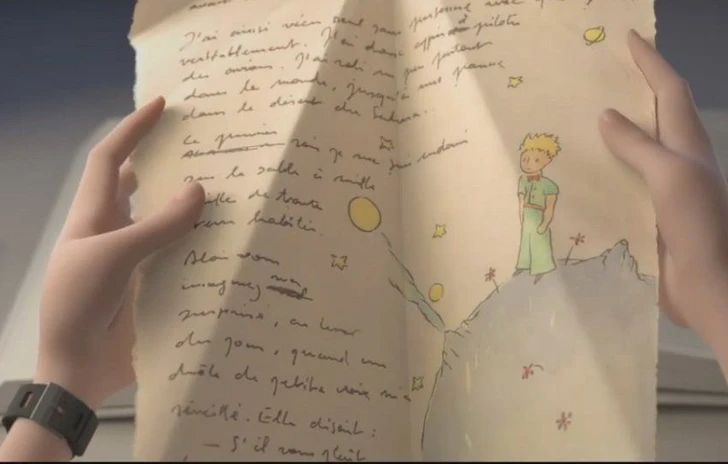 J'ai ainsi vécu seul, sans personne avec qui
véritablement. J'ai donc appris piloter
des avions. J'ai volé un peu partout
dans le monde, jusqu'à
dans le désert du Sahara.
Le premier soir je me suis endormi
sur le sable à mille
mille de toute
terre habitée.
Alors vous
imaginez ma
surprise, au lever
du jour, quand une
drôle de petite voix m'a
réveillé. Elle disait :
— S'il vous plaît